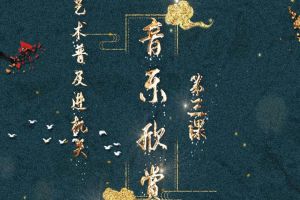 艺术普及进机关
音乐欣赏
第三课